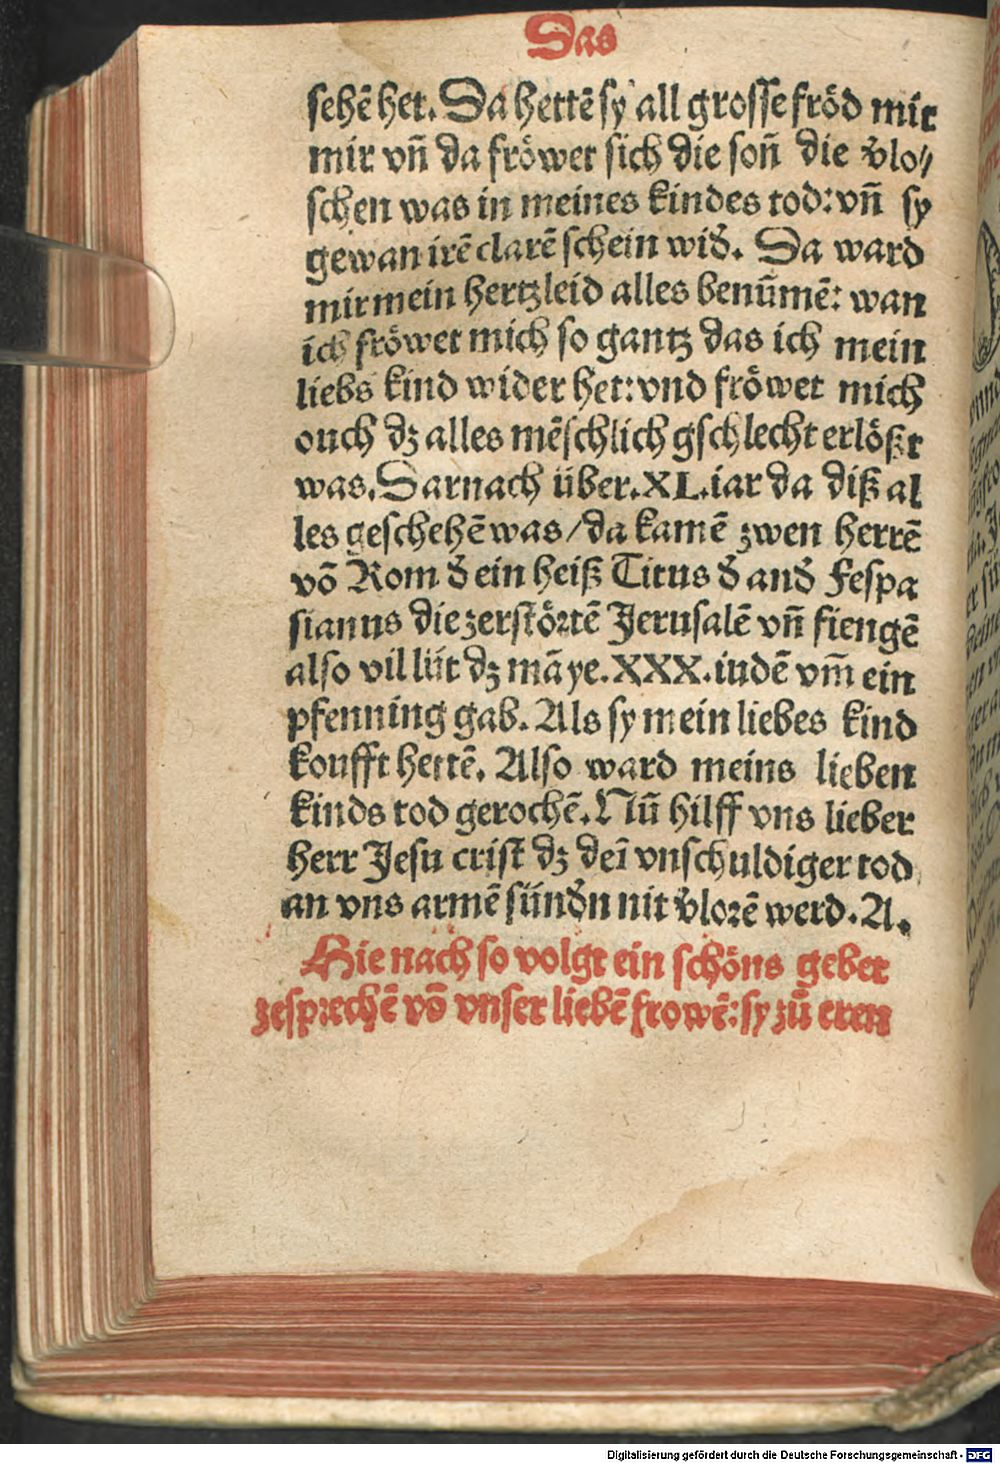 Das
sehē het. Da hettē sy all grosse frǒd mit
mir vñ da frǒwet sich die soñ die v̄lo//
schen was in meines kindes tod: vñ sy
gewan irē clarē schein wid̄. Da ward
mir mein hertzleid alles benūmē: wan
ich frǒwet mich so gantz das ich mein
liebs kind wider het: vnd frǒwet mich
ouch dz alles mēschlich gschlecht erlößt
was. Darnach über. XL. iar da diß al
les geschehē was / da kamē zwen herrē
vō Rom d̄ ein heiß Titus d̄ and̄ Fespa
sianus die zerstörtē Jerusalē vñ fiengē
also vil lüt dz mā ye. XXX. iudē vm̄ ein
pfenning gab. Als sy mein liebes kind
koufft hettē. Also ward meins lieben
kinds tod gerochē. Nū hilff vns lieber
herr Jesu crist dz deī vnschuldiger tod
an vns armē sünd̄n nit v̄lorē werd. A.
Hie nach so volgt ein schöns gebet
zesprechē vō vnser liebē frowē: sy zů eren
Digitalisierung gefördert durch die Deutsche Forschungsgemeinschaft - DFG